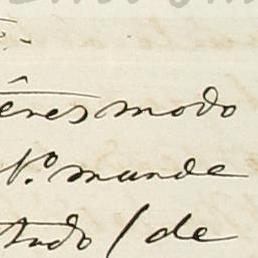 êres modo
V.º mande
tudo (de